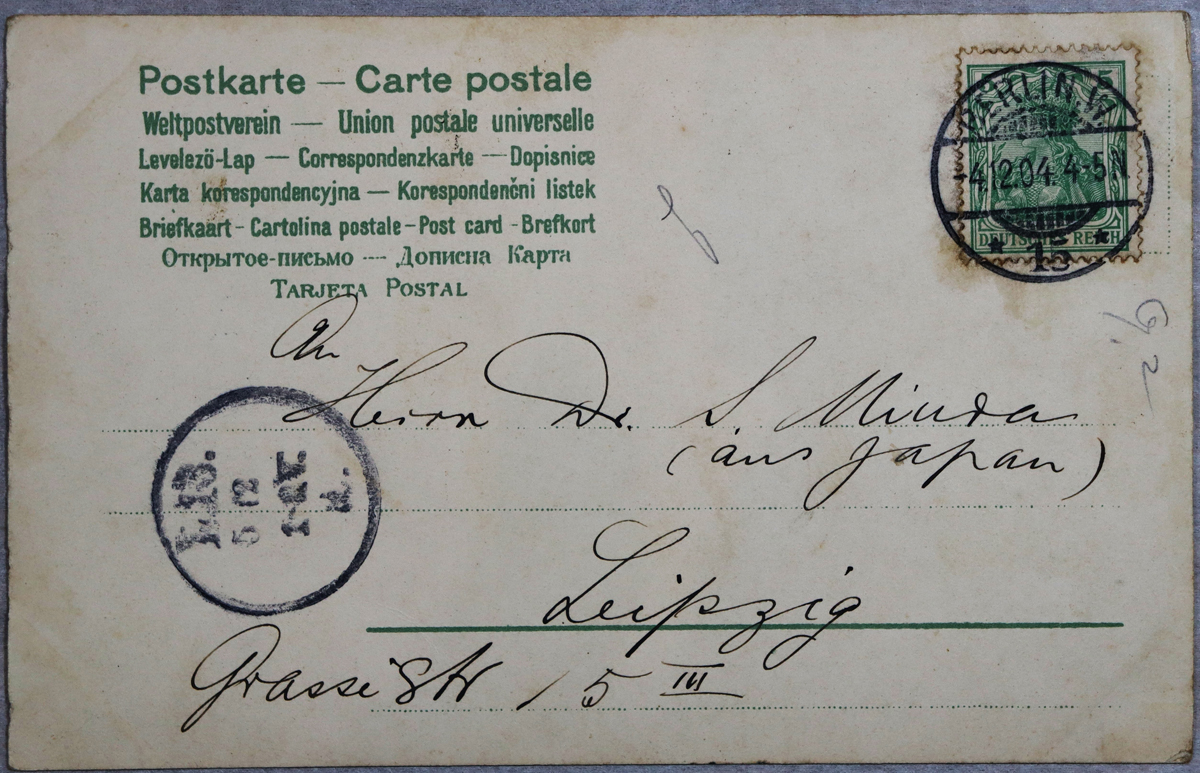 Postkarte — Carte postale
Weltpostverein — Union postale universelle
Levelező-Lap — Correspondenzkarte — Dopisnice
Karta korespondencyjna — Korespondenčni listek
Briefkaart - Cartolina postale - Post card - Brefkort
Открытое-письмо — Дописна Карта
TARJETA POSTAL
5
BERLIN.W.
-4.12.04. 4-5N
* 15 *
DEUTSCHES REICH
An
Herrn Dr. S. Minda
(aus Japan)
L.13.
5 12
1-2V.
Leipzig
Grassistr 15 III